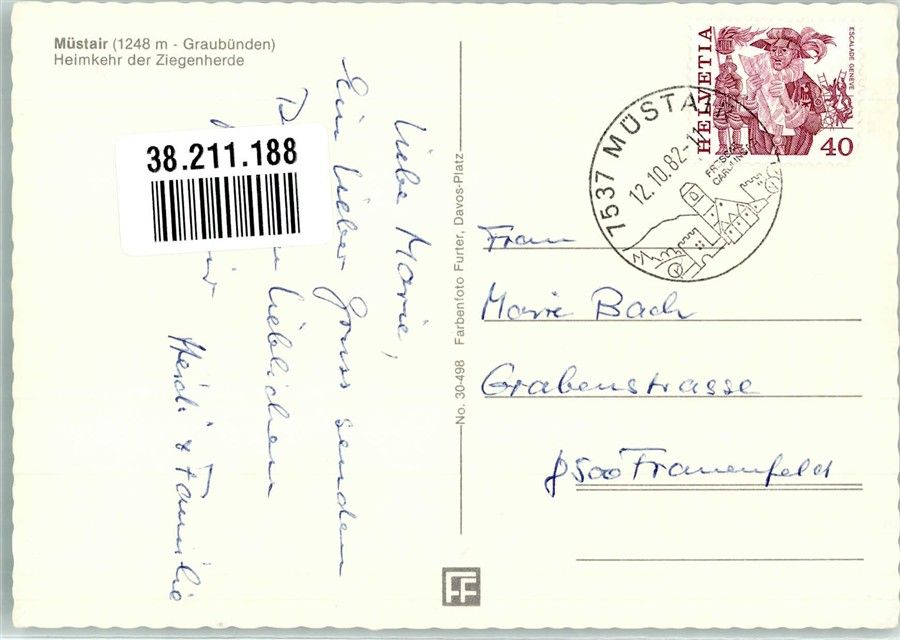 Müstair (1248 m - Graubünden)
Heimkehr der Ziegenherde
38.211.188
Liebe Marie,
Ein lieber Gruss senden
lieblichen
Heidi & Familie
No. 30-498 Farbenfoto Furter, Davos-Platz
HELVETIA
ESCALADE GENÈVE
40
7537 MÜSTA
12.10.82-11
Frau
Marie Bach
Grabenstrasse
8500 Frauenfeld
FF